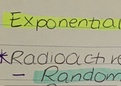 Exponential
*Radioactive
- Random